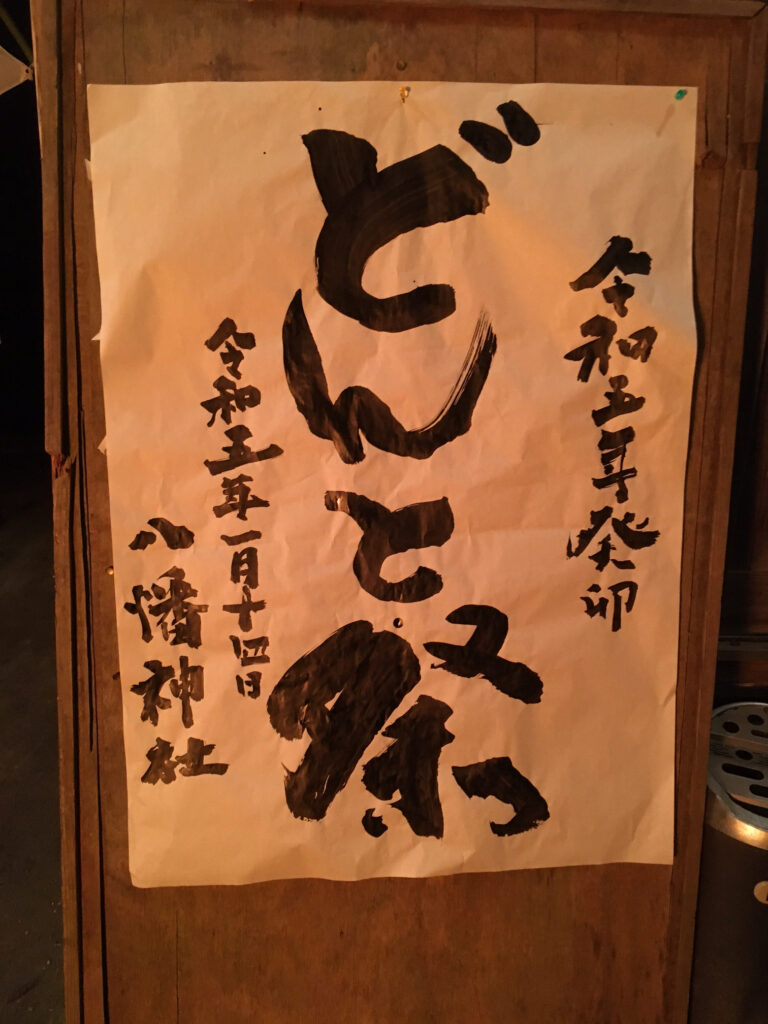 令和五年癸卯
どんと祭
令和五年一月十四日
八幡神社